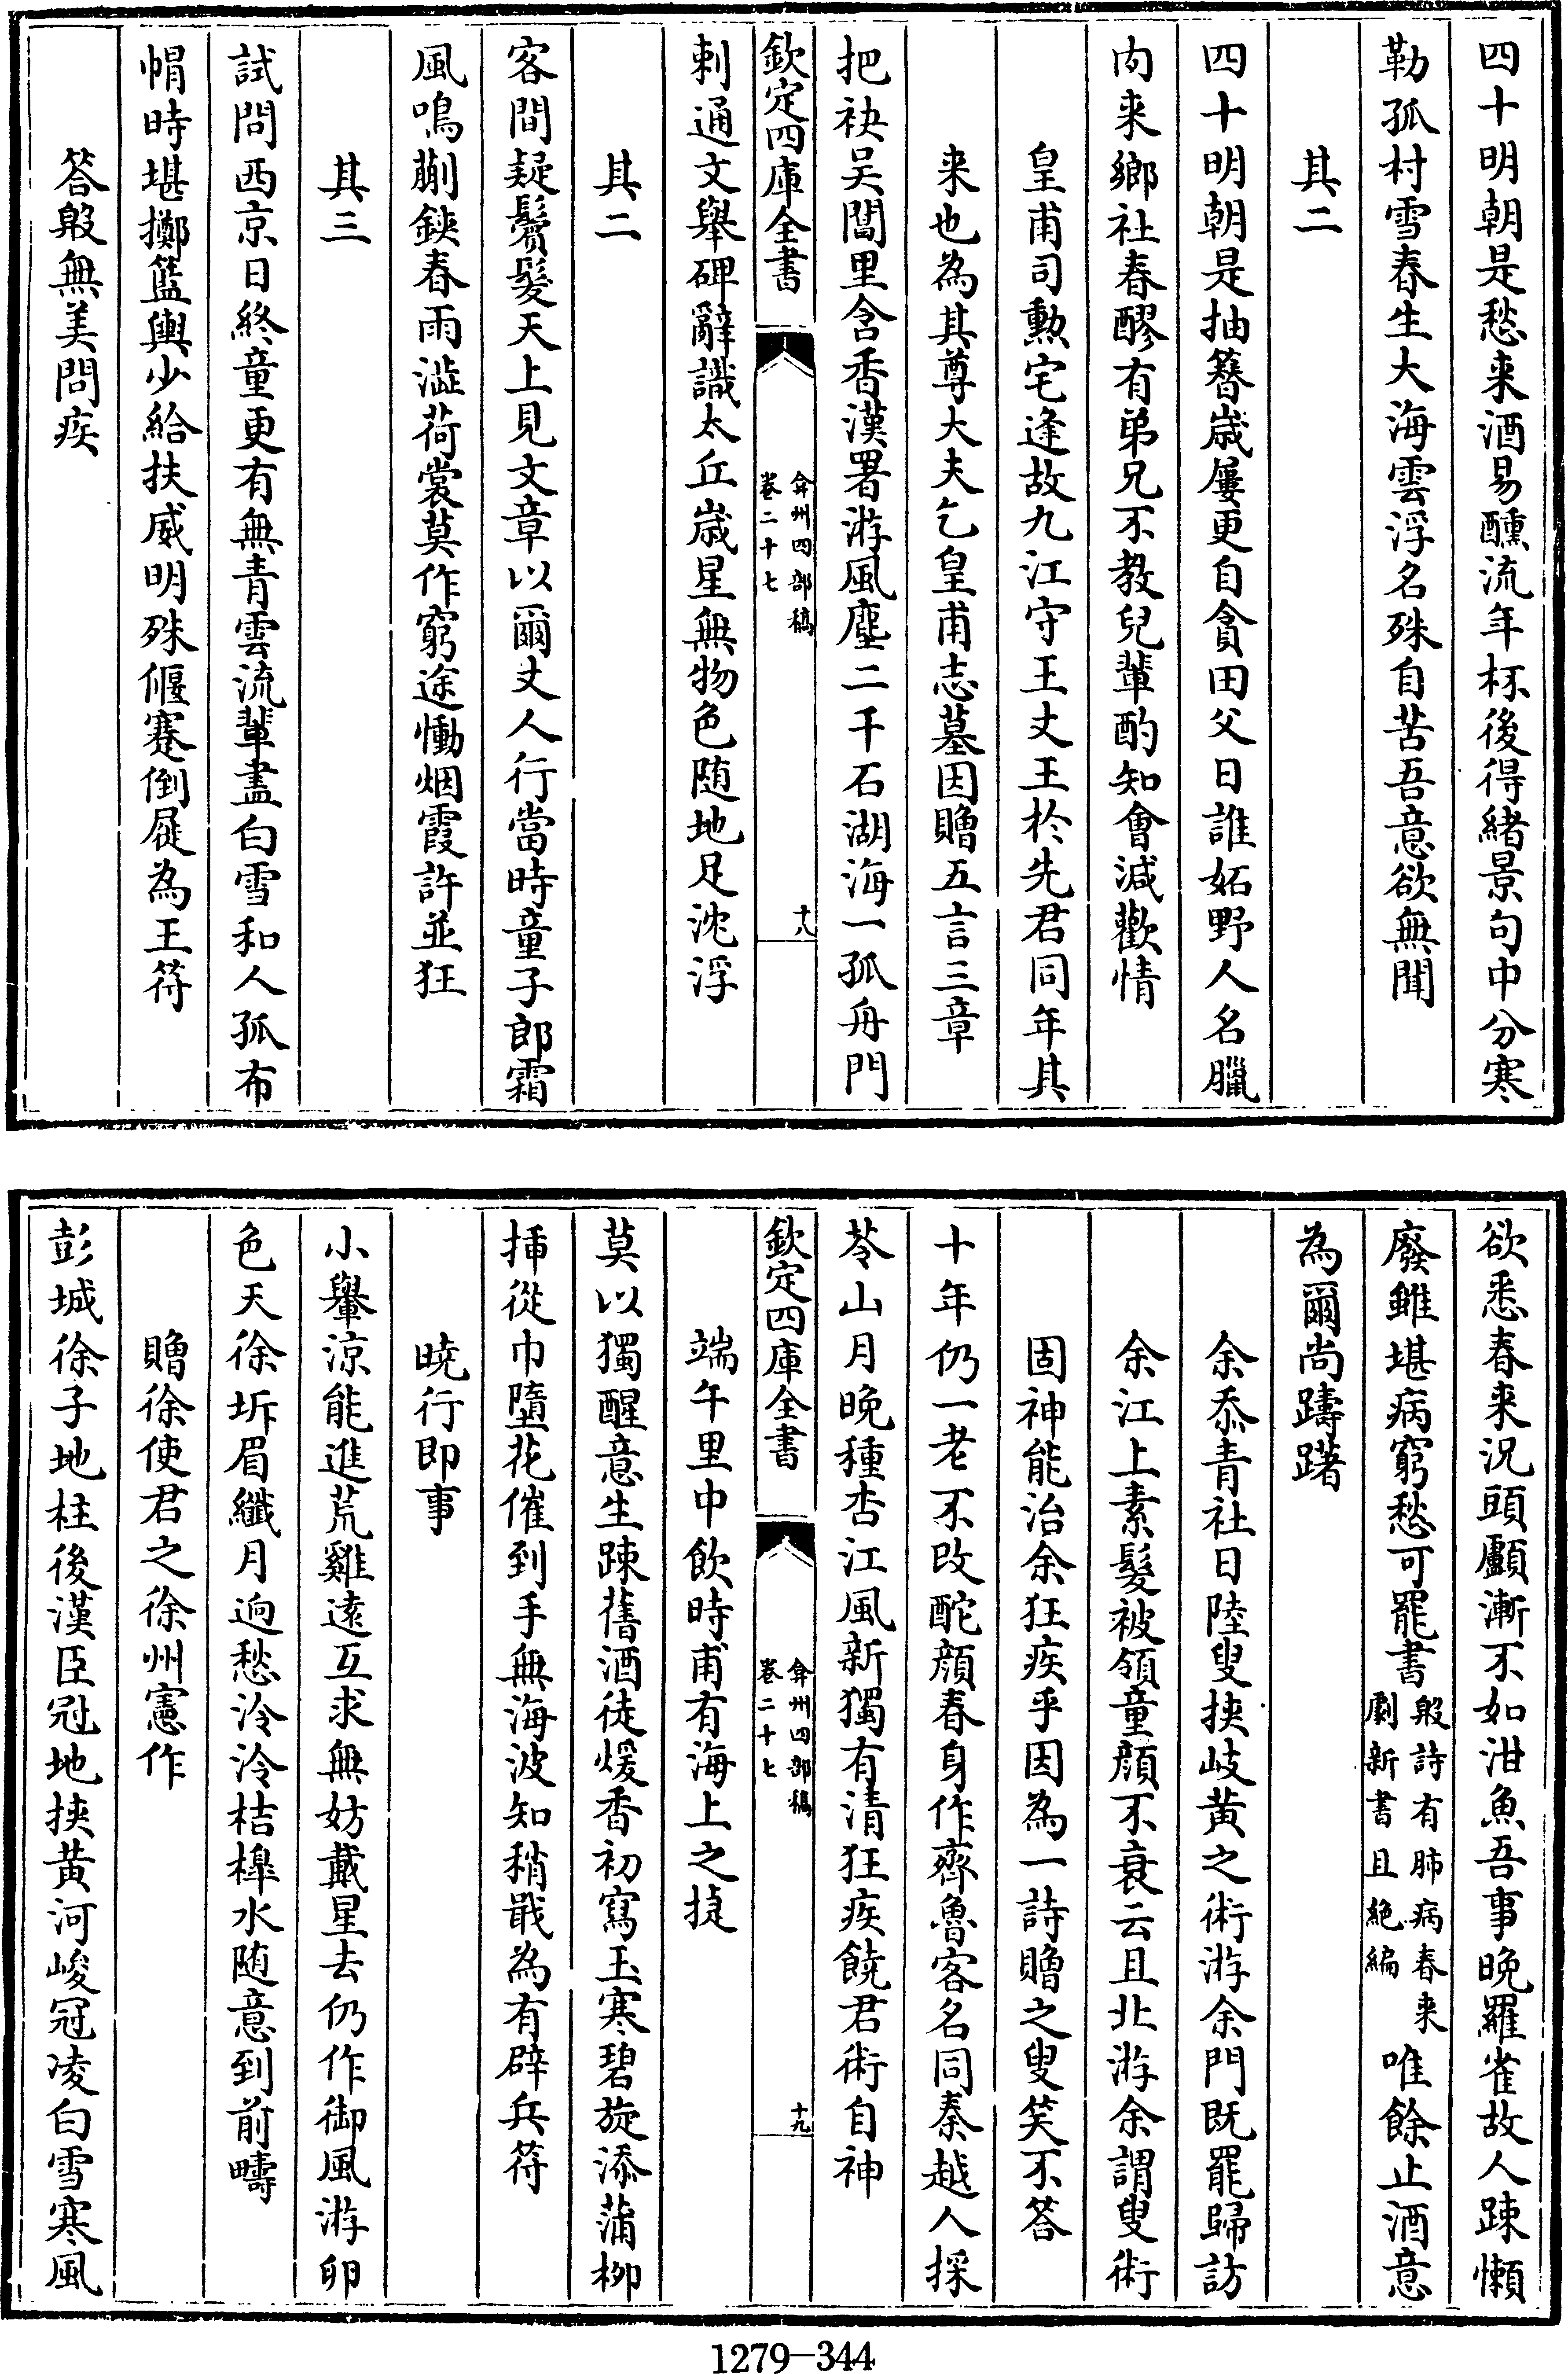 四十明朝是愁来酒易醺流年杯後得緒景句中分寒
勒孤村雪春生大海雲浮名殊自苦吾意欲無聞
其二
四十明朝是抽簪嵗屢更自貪田父日誰妬野人名臘
内来鄉社春醪有弟兄不教兒輩酌知會減歡情
皇甫司勲宅逢故九江守王丈王於先君同年其
来也為其尊大夫乞皇甫志墓因贈五言三章
把袂吴閶里含香漢署游風塵二千石湖海一孤舟門
欽定四庫全書
弇州四部稿
卷二十七
十八
刺通文舉碑辭識太丘嵗星無物色随地足沈浮
其二
客間疑鬢髮天上見文章以爾丈人行當時童子郎霜
風鳴蒯鋏春雨澁荷裳莫作窮途慟烟霞許並狂
其三
試問西京日終童更有無青雲流輩盡白雪和人孤布
帽時堪擲籃輿少給扶威明殊偃蹇倒屣為王符
答殷無美問疾
欲悉春来況頭顱漸不如泔魚吾事晚羅雀故人踈懶
廢雖堪病窮愁可罷書
殷詩有肺病春来
劇新書且絶編
唯餘止酒意
為爾尚躊躇
余忝青社日陸叟挾岐黄之術游余門既罷歸訪
余江上素髮被領童顔不衰云且北游余謂叟術
固神能治余狂疾乎因為一詩贈之叟笑不答
十年仍一老不改酡顔春身作齊魯客名同秦越人採
苓山月晚種杏江風新獨有清狂疾饒君術自神
欽定四庫全書
弇州四部稿
卷二十七
十九
端午里中飲時甫有海上之捷
莫以獨醒意生踈舊酒徒煖香初寫玉寒碧旋添蒲栁
挿從巾墮花催到手無海波知稍戢為有辟兵符
曉行即事
小轝凉能進荒雞逺互求無妨戴星去仍作御風游卵
色天徐坼眉纎月逈愁泠泠桔槹水随意到前疇
贈徐使君之徐州憲作
彭城徐子地柱後漢臣冠地挾黄河峻冠凌白雪寒風
1279-344